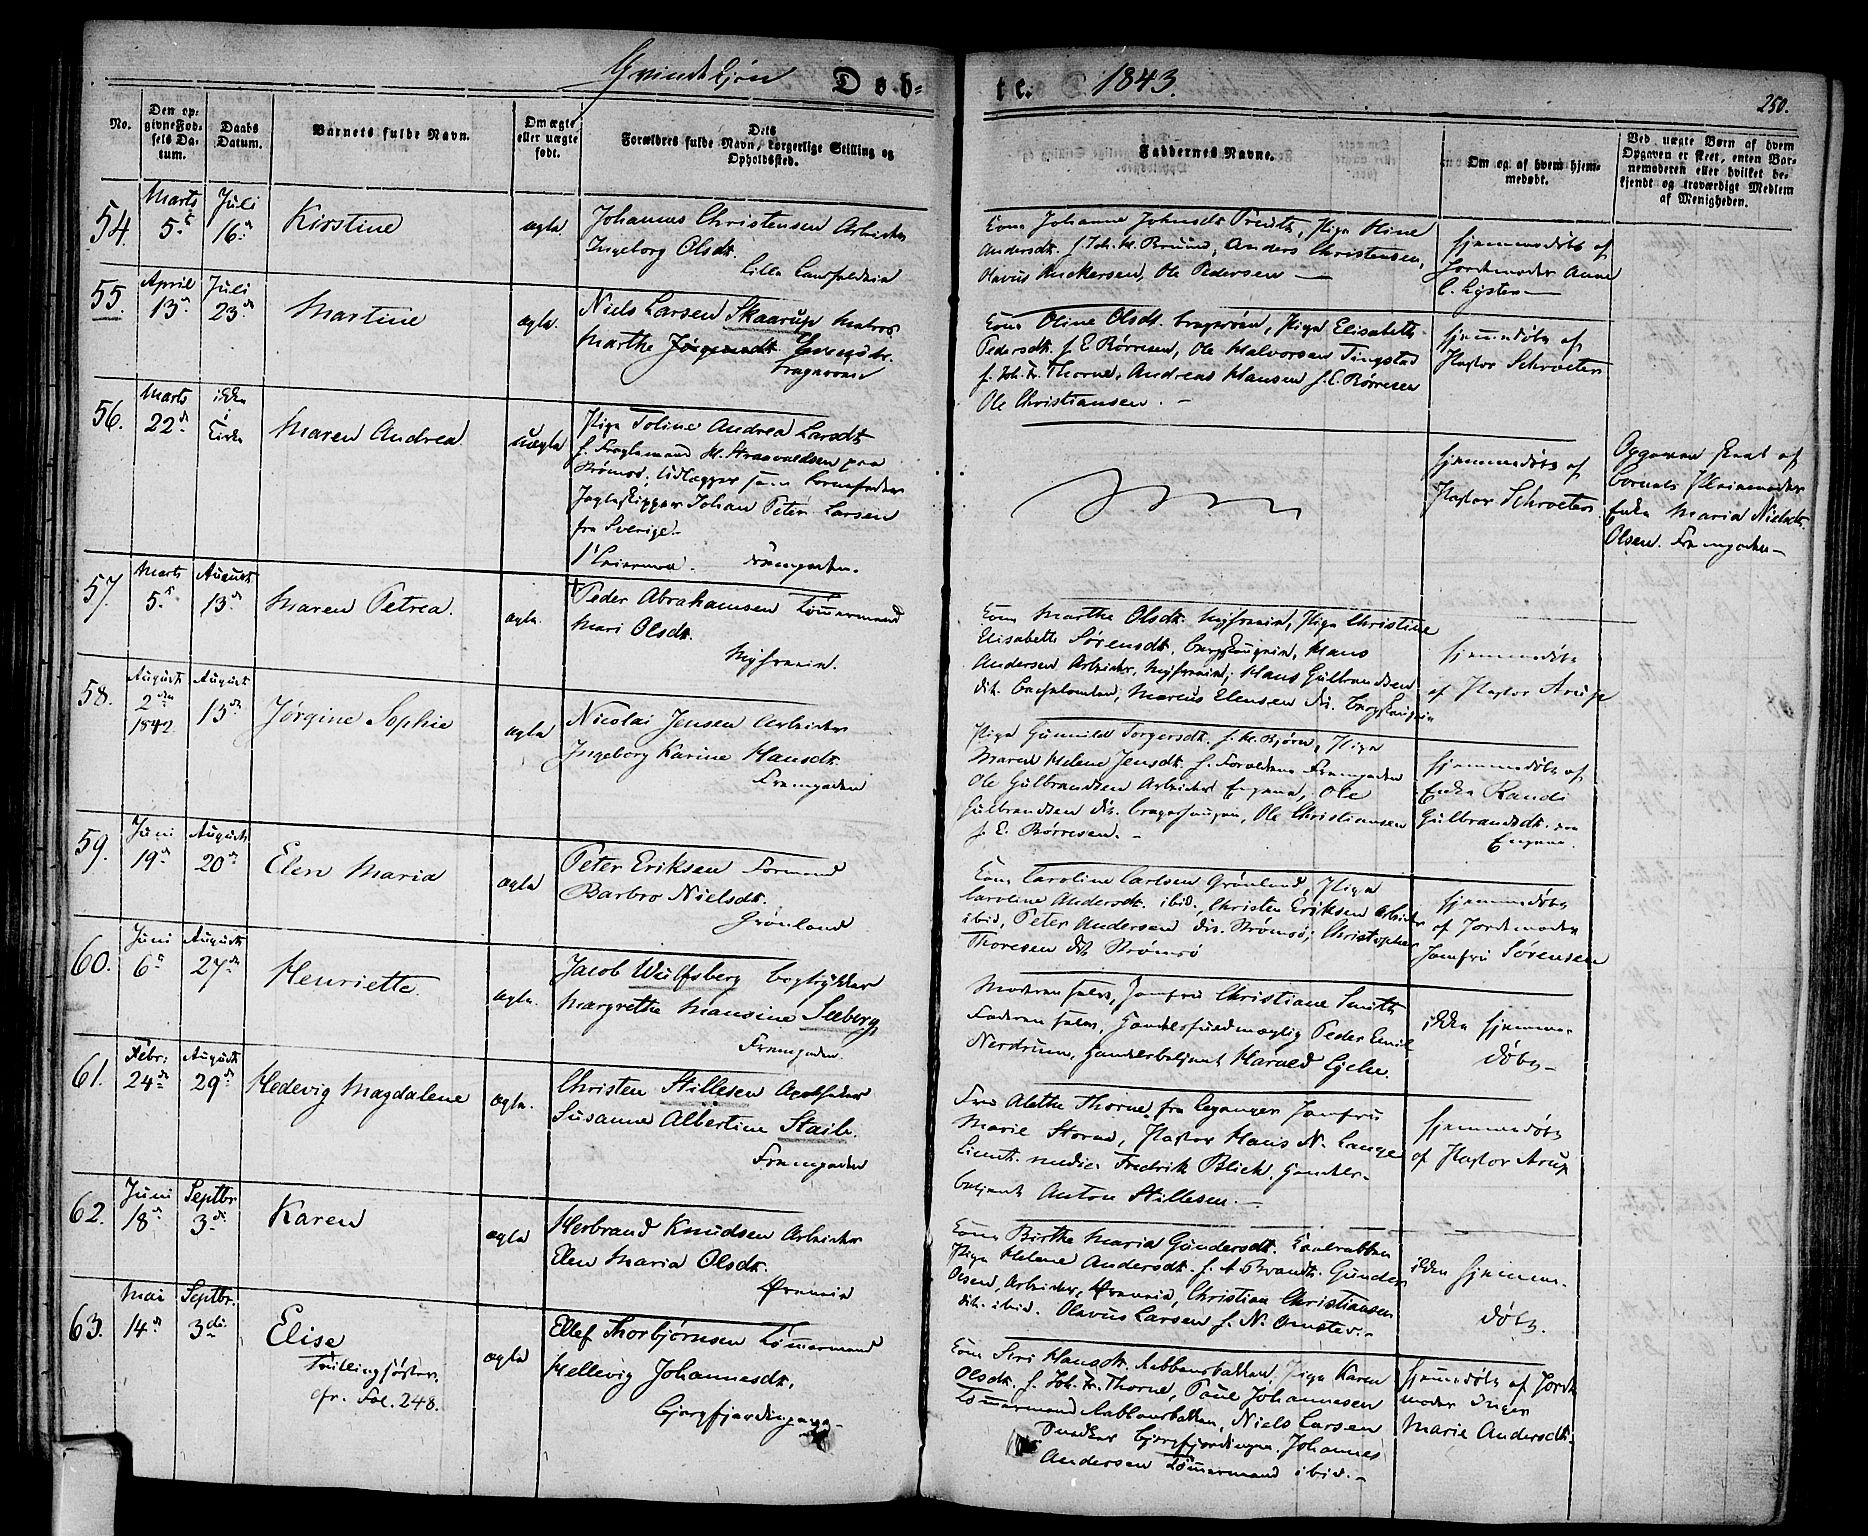 Qvindekjøn Døb-
te. 1843.
250.
No.
Den op-
givne Fød-
sels Da-
tum.
Daabs
Datum.
Barnets fulde Navn.
Om ægte
eller uægte
født.
Dets
Forældres fulde Navn, borgerlige Stilling og
Opholdssted.
Faddernes Navne.
Om og af hvem hjem-
medøbt.
Ved uægte Børn af hvem
Opgaven er skeet, enten Bar-
nemoderen eller hvilket be-
kjendt og troværdigt Medlem
af Menigheden.
54. Marts 5te Juli 16de Kirstine ægte
Johannes Christensen Arbeider
Ingeborg Olsdt.
Lille
Kone Johanne Johnsdt. Pigen Oline
Andersdt. f. Joh. H. Bruun, Anders Christensen,
Olavus Ankersen, Ole Pedersen —
hjemmedøbt af
Jordemoder Anne
C. Lyster —
55. April 13de Juli 23de Martine ægte.
Niels Larsen Skaarup Matros
Marthe Jørgensdt. Evensdt.
Bragerøen
Kone Oline Olsdt. Bragerøen, Pige Elisabeth
Pedersdt. f. E. Børresen, Ole Halvorsen Tingstad
f. Joh. Fr. Thorne, Andreas Hansen f. E. Børresen
Ole Christiansen. —
hjemmedøbt af
Pastor Schroeter
56. Marts 22de ikke i Kirke Maren Andrea uægte
Pige Toline Andrea Larsdt.
f. Fragtemand H. Straavoldsen paa
Strømsø; Udlægger som Barnefader
Jagteskipper Johan Peter Larsen
fra Sverige. —
1ste Leiermaal. Fremgaden.
hjemmedøbt af
Pastor Schroeter.
Opgaven skeet af
Barnets Pleiemoder
Enke Maria Nielsdt.
Olsen. Fremgaden —
57. Marts 5te August 13de Maren Petrea. ægte.
Peder Abrahamsen Tømmermand
Mari Olsdt.
Kone Marthe Olsdt. Pige Christine
Elisabeth Sørensdt. Hans
Andersen Arbeider, Hans Gulbrandsen
dit. Marcus Elensen dit.
hjemmedøbt
af Pastor Arup
58. August 2den 1842. August 13de Jørgine Sophie ægte
Nicolai Jensen Arbeider
Ingeborg Karine Hansdt.
Fremgaden
Pige Gunnild Torgersdt. f. H. Bjørn, Pige
Maren Helene Jensdt. f. Forældrene Fremgaden
Ole Gulbrandsen Arbeider Engene, Ole
Gulbrandsen dit. Ole Christiansen
f. E. Børresen. —
hjemmedøbt af
Enke Randi
Gulbrandsdt.
Engene.
59. Juni 19de August 20de Elen Maria ægte
Peter Eriksen Formand
Barbro Nielsdt.
Grønland
Kone Caroline Carlsen Grønland, Pige
Caroline Andersdt. ibid., Christen Eriksen Arbeider
ibid, Peter Andersen dit. Strømsø, Christopher
Thoresen dit. Strømsø
hjemmedøbt
af Jordemoder
Jomfru Sørensen
60. Juni 6te August 27de Henriette. ægte.
Jacob Wulfsberg Bogtrykker
Margrethe Mansine Seeberg
Fremgaden.
Moderen selv, Jomfru Christiane Smith
Faderen selv, Handelsfuldmægtig Peder Emil
Nerdrum, Handelsbetjent Harald Gjelee.
ikke hjemme-
døbt —
61. Febr: 24de August 29de Hedevig Magdalene ægte.
Christen Stillesen Apotheker
Susanne Albertine Staib.
Fremgaden
Fru Alethe Thorne fra Jomfru
Marie Storm, Pastor Hans N. Lange
Licent. medic. Fredrik Blich, Handels-
betjent Anton Stillesen. —
hjemmedøbt
af Pastor Arup
62. Juni 18de Septbr 3die Karen ægte
Herbrand Knudsen Arbeider
Elen Maria Olsdt.
Kone Birthe Maria Gundersdt.
Pige Helene Andersdt. f. A. Brandt. Gunder
Olsen, Arbeider, Christian Christiansen
dit. ibid. Olavus Larsen f. N. Omsted. —
ikke hjemme-
døbt.
63. Mai 14de Septbr. 3die Elise ægte
Tvillingsøster,
cfr. Fol. 248.
Ellef Thorbjørnsen Tømmermand
Hellevig Johannesdt.
Kone Siri Hansdt. Pige Karen
Olsdt. f. Joh. Fr. Thorne, Paul Johannesen
Tømmermand Niels Larsen
Snedker Johannes
Andersen Tømmermand ibid. —
hjemmedøbt af Jorde-
moder Inger
Marie Andersdt. —